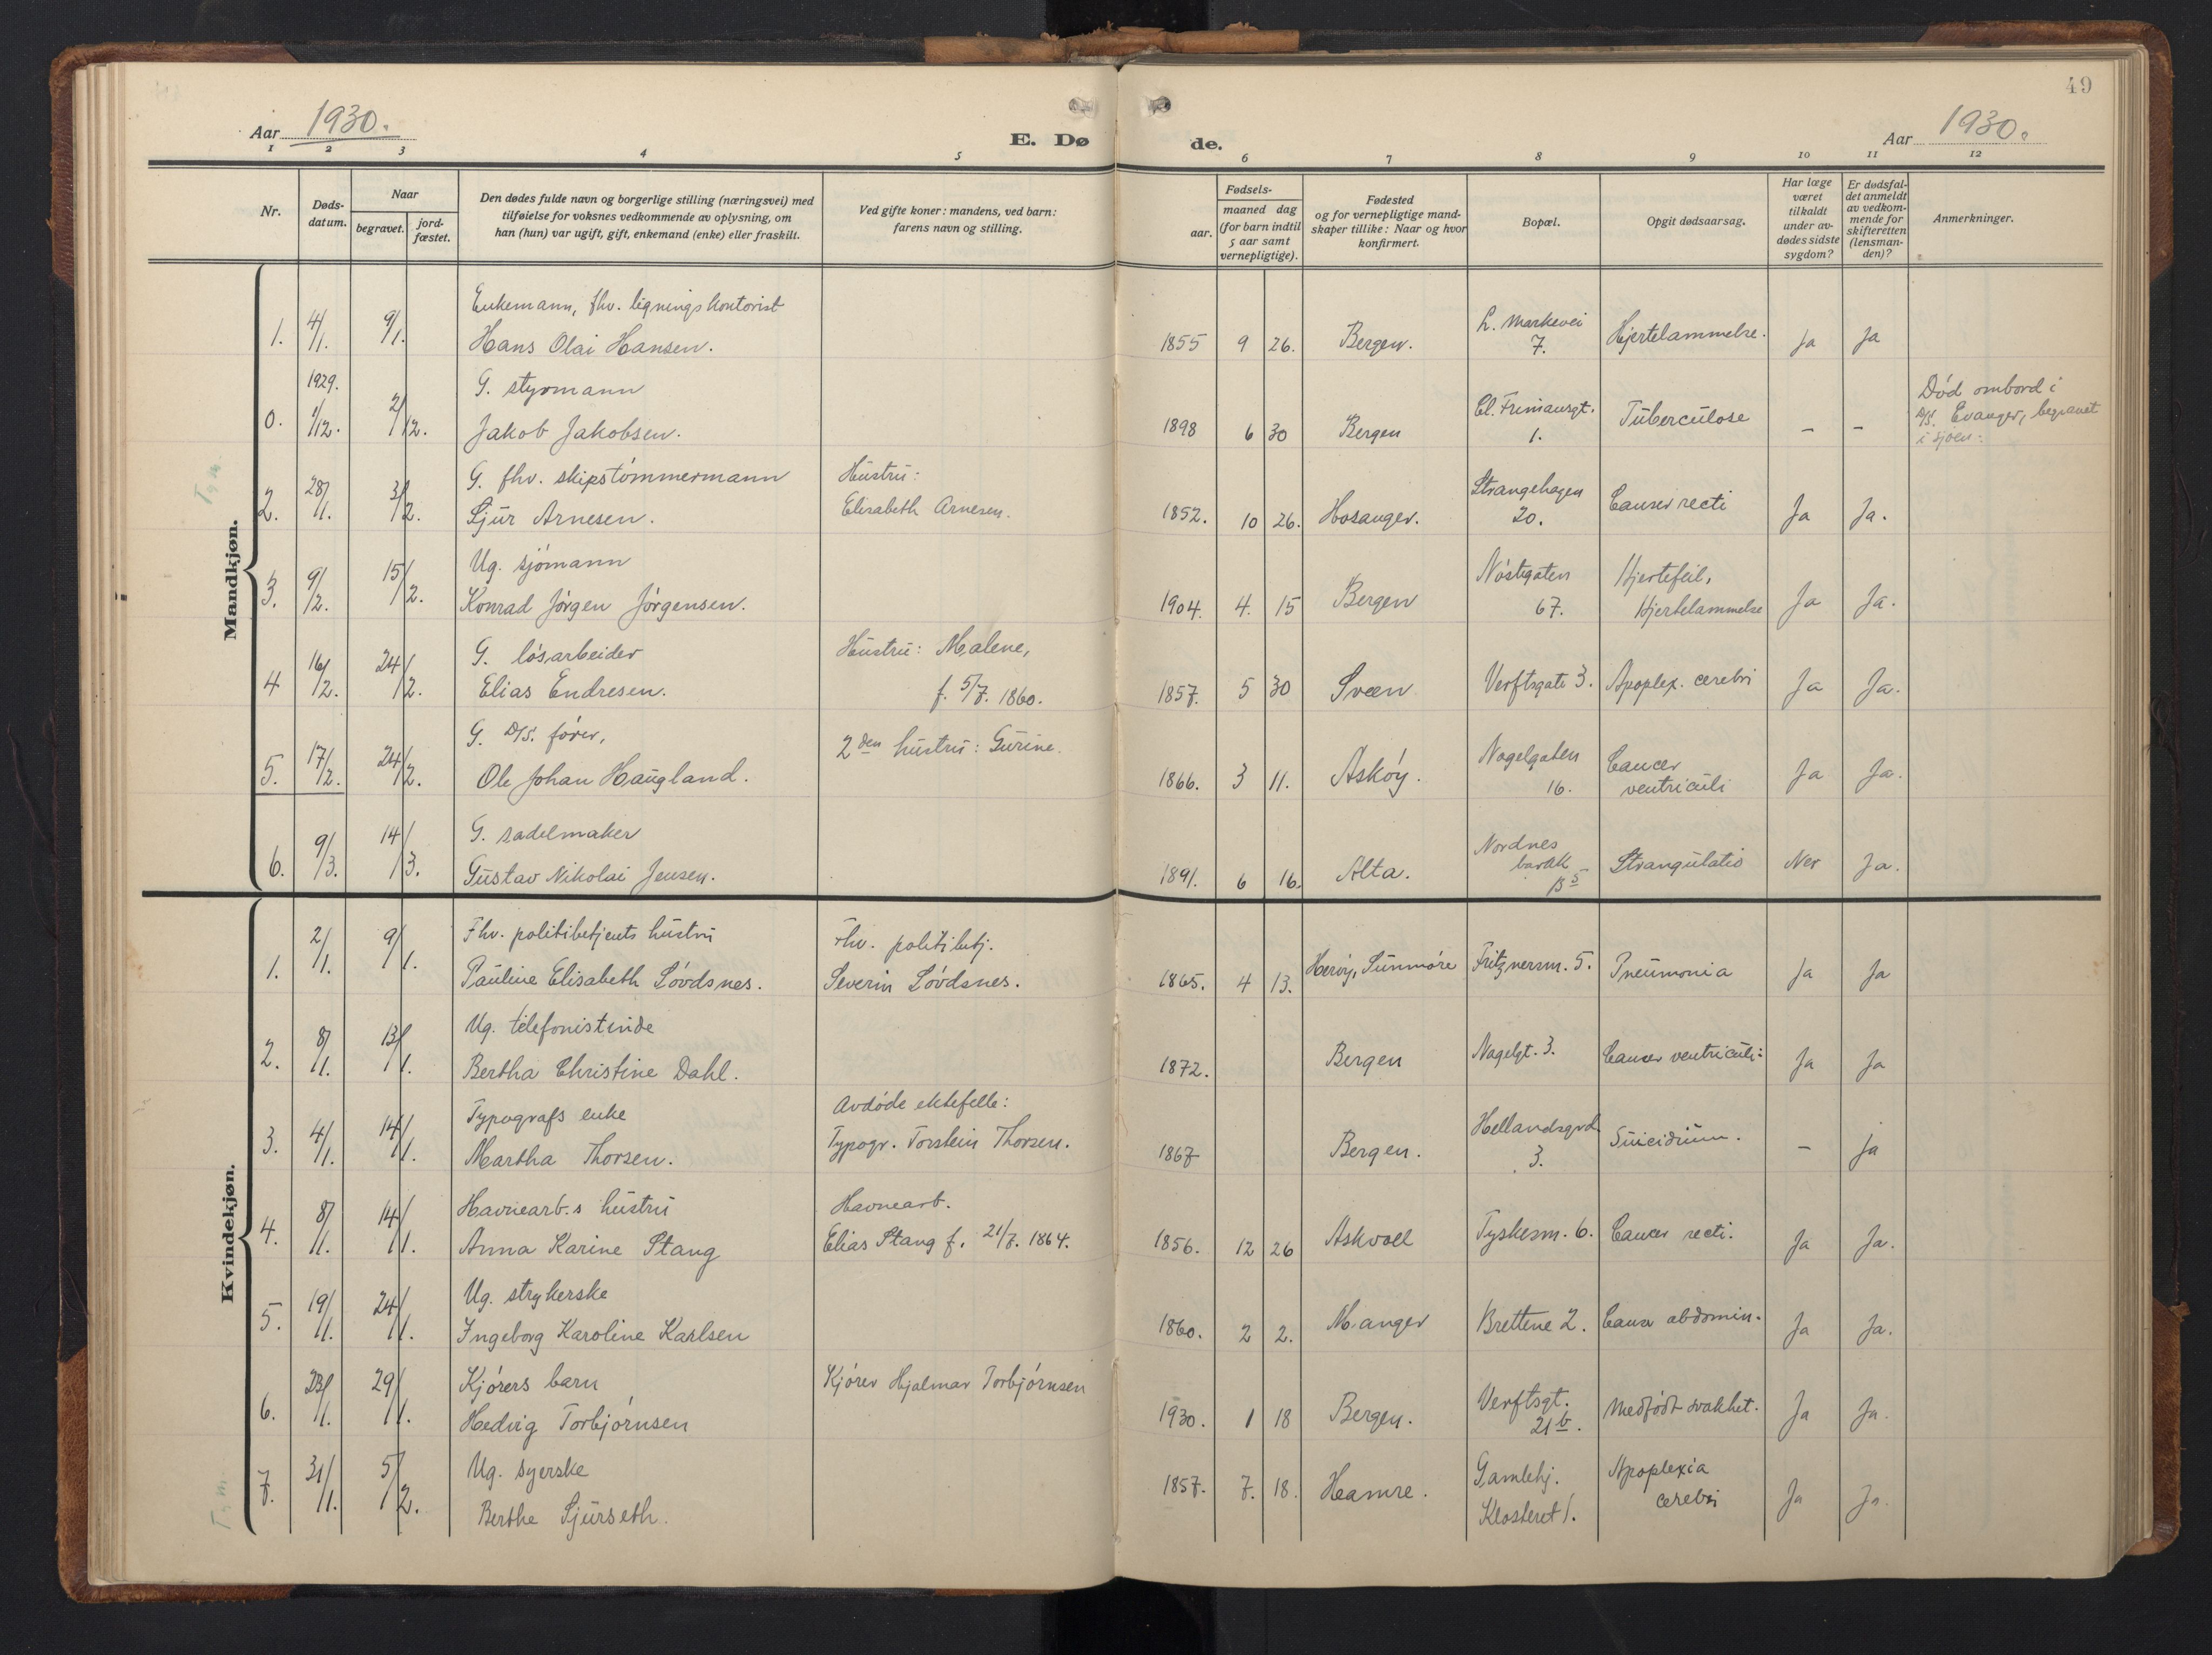 49
Aar 1930.
E. Dø
de.
Aar 1930.
1 2 3 4 5 6 7 8 9 10 11 12
Nr.
Døds-
datum.
Naar
begravet.
jord-
fæstet.
Den dødes fulde navn og borgerlige stilling (næringsvei) med
tilføielse for voksnes vedkommende av oplysning, om
han (hun) var ugift, gift, enkemand (enke) eller fraskilt.
Ved gifte koner: mandens, ved barn:
farens navn og stilling.
Fødsels-
aar.
maaned dag
(for barn indtil
5 aar samt
vernepligtige).
Fødested
og for vernepligtige mand-
skaper tillike: Naar og hvor
konfirmert.
Bopæl.
Opgit dødsaarsag.
Har læge
været
tilkaldt
under av-
dødes sidste
sygdom?
Er dødsfal-
det anmeldt
av vedkom-
mende for
skifteretten
(lensman-
den)?
Anmerkninger.
Mandkjøn.
Enkemann, fhv. ligningskontorist
1. 4/1. 9/1. Hans Olai Hansen. 1855 9 26. Bergen. L. Markevei 7. Hjertelammelse. Ja Ja
1929. G. styrmann
0. 1/12. 2/12. Jakob Jakobsen. 1898 6 30 Bergen Cl. Frimansgt. 1. Tuberculose – –
Død ombord i
D/S. Evanger, begravet
i sjøen.
G. fhv. skipstømmermann Hustru:
2. 28/1. 3/2. Sjur Arnesen. Elisabeth Arnesen. 1852. 10 26. Hosanger. Strangehagen 20. Cancer recti Ja Ja.
Ug. sjømann
3. 9/2. 15/2. Konrad Jörgen Jörgensen. 1904. 4. 15 Bergen Nøstegaten 67. Hjertefeil, Hjertelammelse Ja Ja.
G. løsarbeider Hustru: Malene,
4 16/2. 24/2. Elias Endresen. f. 5/7. 1860. 1857. 5 30 Sveen Verftsgate 3. Apoplex. cerebri Ja Ja.
G. D/S. fører, 2den hustru: Gurine.
5. 17/2. 24/2. Ole Johan Haugland. 1866. 3 11. Askøy. Nagelgaten 16. Cancer ventriculi Ja Ja.
G. sadelmaker
6. 9/3. 14/3. Gustav Nikolai Jensen. 1891. 6 16. Alta. Nordnes barakk B 5 Strangulatio Nei Ja.
Kvindekjøn.
Fhv. politibetjents hustru Fhv. politibetj.
1. 2/1. 9/1. Pauline Elisabeth Løvdsnes. Severin Løvdsnes. 1865. 4 13. Herøy, Sunmøre Fritznersm. 5. Pneumonia Ja Ja
Ug. telefonistinde
2. 8/1. 13/1. Bertha Christine Dahl. 1872. Bergen Nagelgt. 3. Cancer ventriculi. Ja Ja
Typografs enke Avdøde ektefelle:
3. 4/1. 14/1. Martha Thorsen. Typogr. Torstein Thorsen. 1867 Bergen. Hellandsgrd. 3. Suicidium. – Ja
Havnearb.s hustru Havnearb.
4. 8/1. 14/1. Anna Karine Stang Elias Stang f. 21/7. 1864. 1856. 12 26 Askvoll Tyskesm. 6. Cancer recti. Ja Ja.
Ug. strykerske
5. 19/1. 24/1. Ingeborg Karoline Karlsen 1860. 2 2. Manger Brettene 2. Cancer abdomin. Ja Ja.
Kjørers barn Kjører Hjalmar Torbjørnsen
6. 23/1. 29/1. Hedvig Torbjørnsen 1930. 1 18 Bergen. Verftsgt. 21 b. Medfødt svakhet. Ja Ja.
Ug. syerske
7. 31/1. 5/2. Berthe Sjurseth. 1857. 7. 18. Hamre. Gamlehj. Klosteret 1. Apoplexia cerebri Ja Ja.